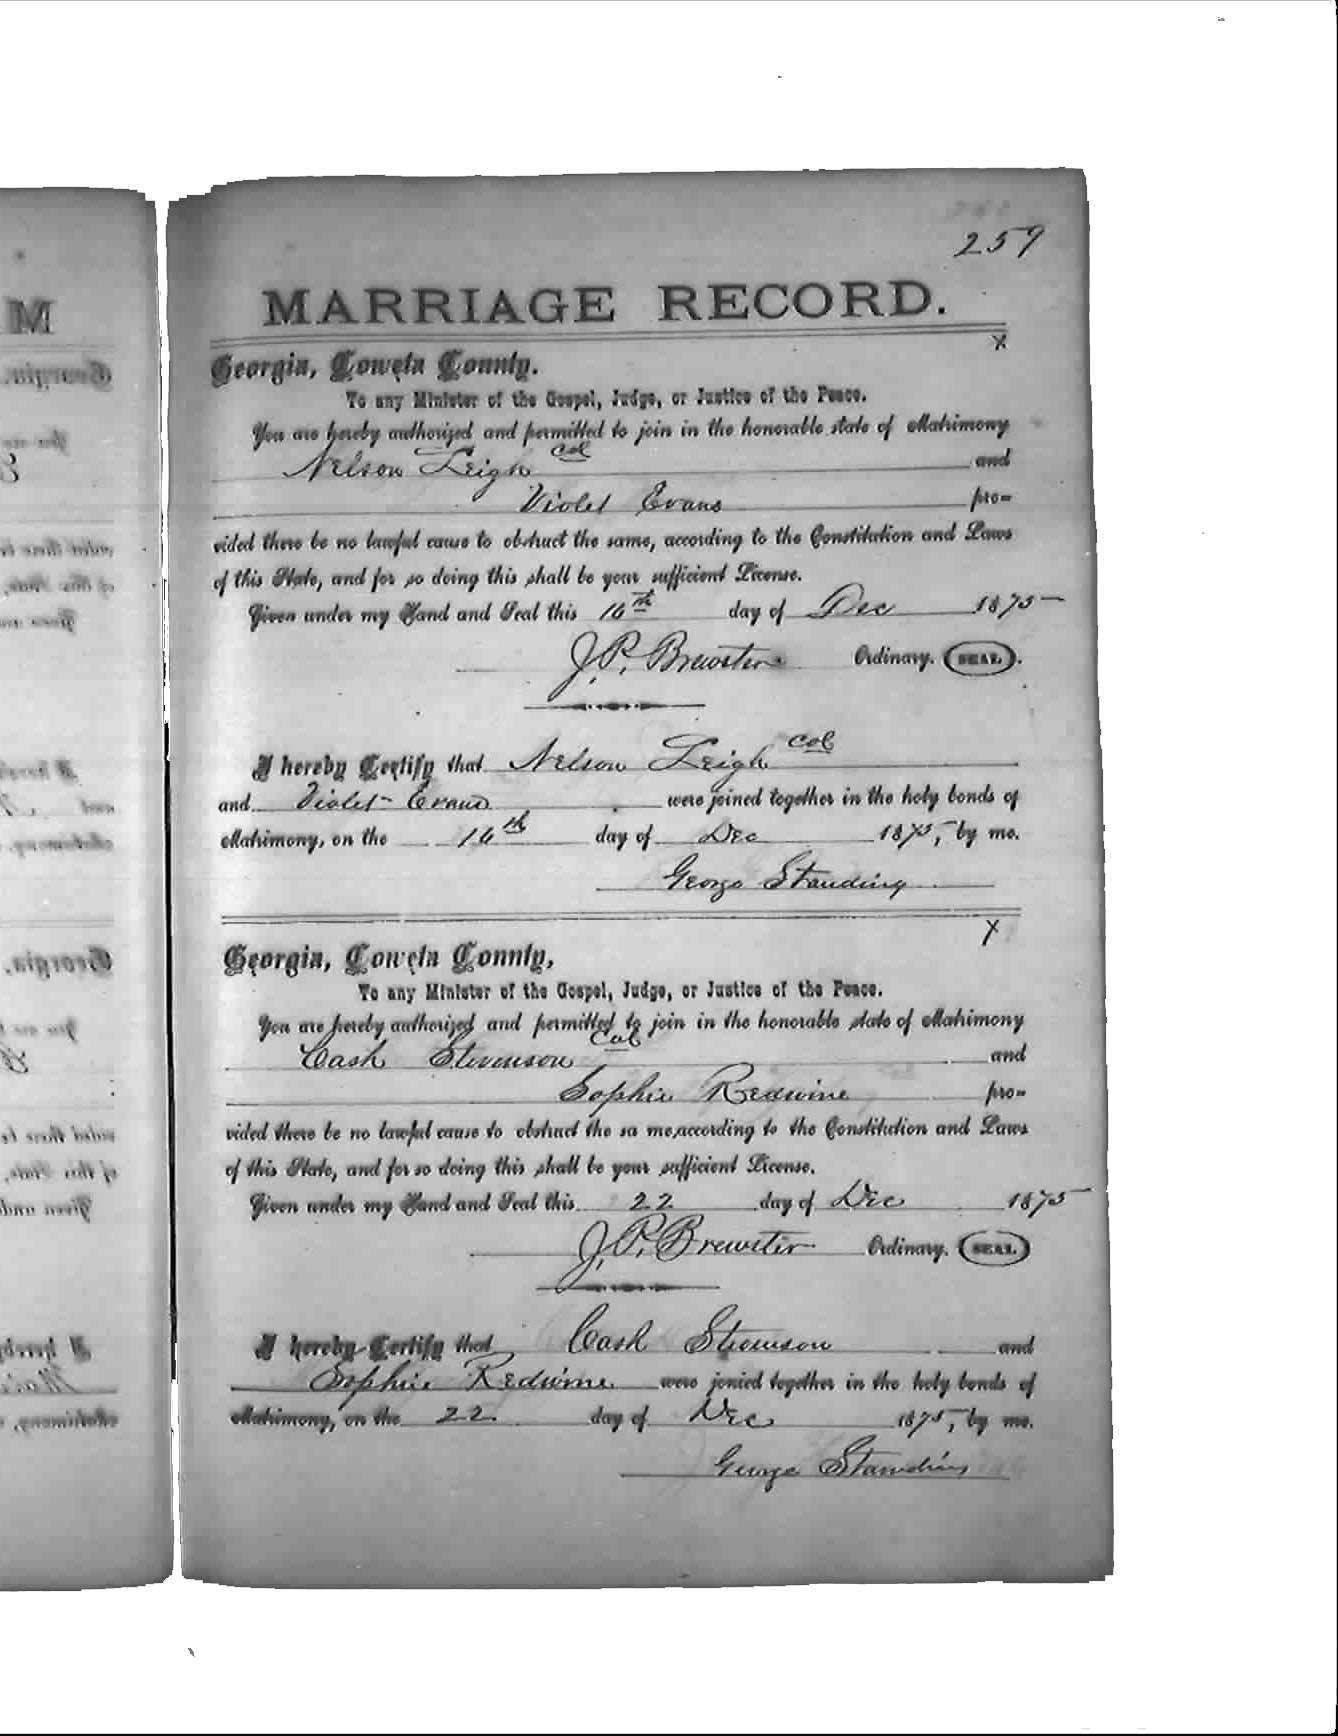 259
MARRIAGE RECORD.
X
Georgia, Coweta County.
To any Minister of the Gospel, Judge, or Justice of the Peace.
You are hereby authorized and permitted to join in the honorable state of Matrimony
Nelson Leigh col and
Violet Evans pro-
vided there be no lawful cause to obstruct the same, according to the Constitution and Laws
of this State, and for so doing this shall be your sufficient License.
Given under my Hand and Seal this 16th day of Dec 1875
J. P. Brewster Ordinary. SEAL.
I hereby Certify that Nelson Leigh col
and Violet Evans were joined together in the holy bonds of
Matrimony, on the 16th day of Dec 1875, by me.
George Standing
X
Georgia, Coweta County,
To any Minister of the Gospel, Judge, or Justice of the Peace.
You are hereby authorized and permitted to join in the honorable state of Matrimony
Cash Stevenson Col and
Sophie Redwine pro-
vided there be no lawful cause to obstruct the sa me,according to the Constitution and Laws
of this State, and for so doing this shall be your sufficient License.
Given under my Hand and Seal this 22 day of Dec 1875
J. P. Brewster Ordinary. SEAL.
I hereby Certify that Cash Stevenson and
Sophie Redwine were jonied together in the holy bonds of
Matrimony, on the 22 day of Dec 1875, by me.
George Standing